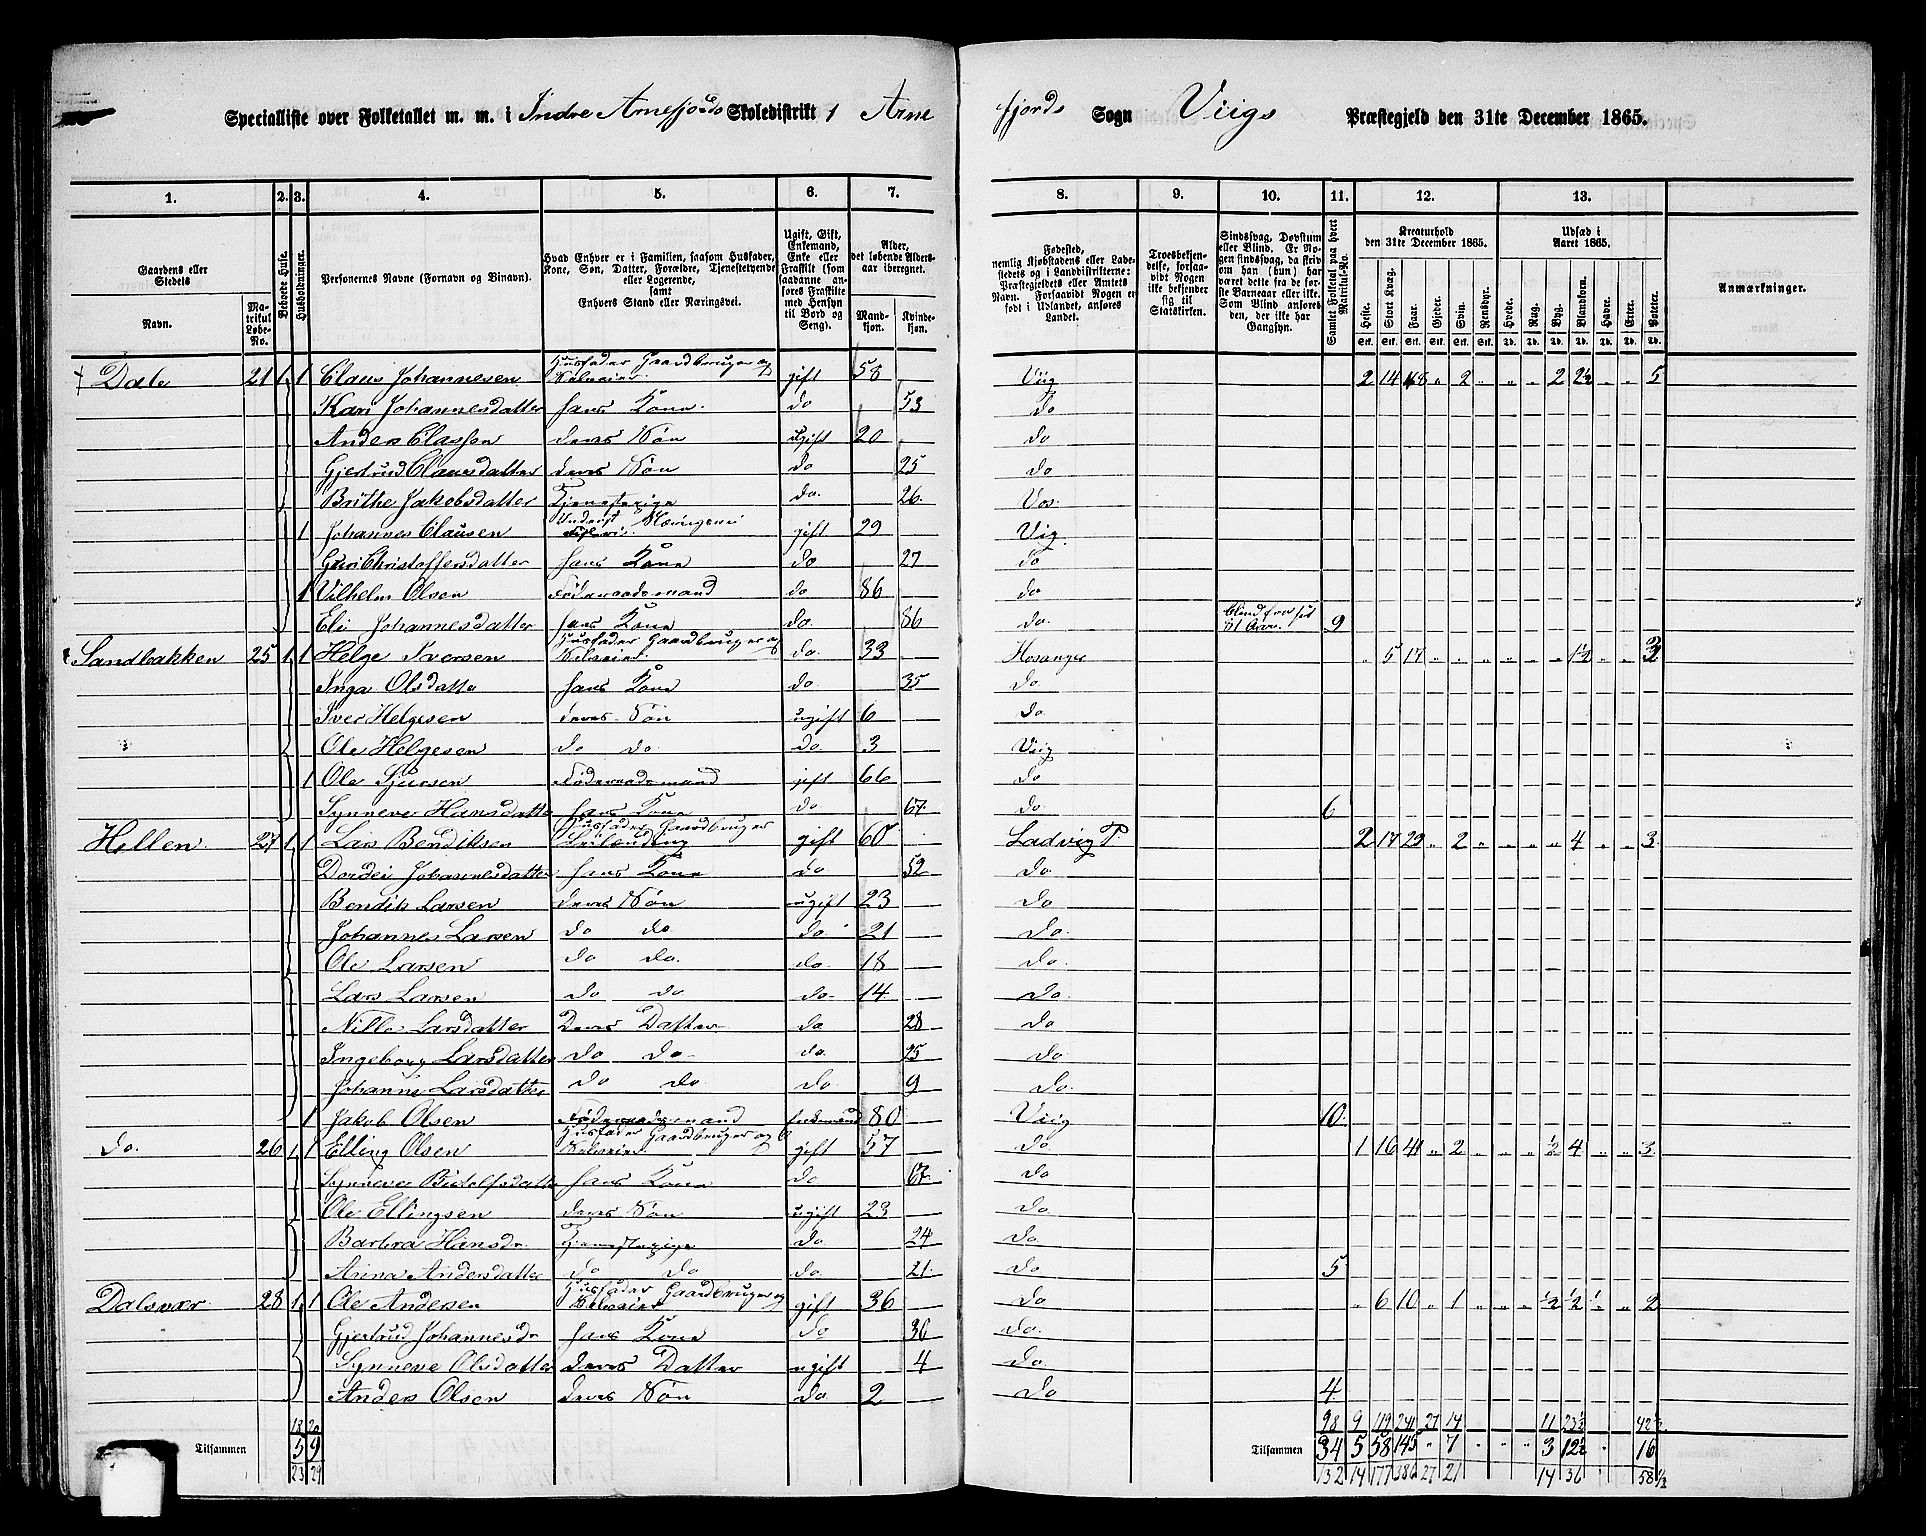 Specialliste over Folketallet m. m. i Indre Arnefjords Skoledistrikt 1 Arne fjords Sogn Viigs Præstegjeld den 31te December 1865.
1. 2. 3. 4. 5. 6. 7. 8. 9. 10. 11. 12. 13.
Gaardens eller Stedets Navn. Matrikul Løbe-No.
Beboede Huse.
Husholdninger.
Personernes Navne (Fornavn og Binavn).
Hvad Enhver er i Familien, saasom Husfader, Kone, Søn, Datter, Forældre, Tjenestetyende eller Logerende, samt Enhvers Stand eller Næringsvei.
Ugift, Gift, Enkemand, Enke eller Fraskilt (som saadanne anføres Fraskilte med Hensyn til Bord og Seng).
Alder, det løbende Aldersaar iberegnet. Mandkjøn. Kvindekjøn.
Fødested, nemlig Kjøbstadens eller Ladestedets og i Landdistrikterne: Præstegjeldets eller Amtets Navn. Forsaavidt Nogen er født i Udlandet, anføres Landet.
Troesbekjendelse, forsaavidt Nogen ikke bekjender sig til Statskirken.
Sindssvag, Døvstum eller Blind. Er Nogen sindssvag, da skrives om han (hun) har været dette fra de første Barneaar eller ikke. Som Blind anføres den, der ikke har Gangsyn.
Samlet Folketal paa hvert Matrikul-No.
Kreaturhold den 31te December 1865. Heste. Stort Kvæg. Faar. Gjeder. Svin. Rensdyr.
Udsæd i Aaret 1865. Hvede. Rug. Byg. Blandkorn. Havre. Erter. Poteter.
Anmærkninger.
Dale 21 1 1 Claus Johannesen Husfader Gaardbruger og Selveier gift 58 Viig 2 14 2 2 2½ 5
Kari Johannesdatter hans Kone do 53 do
Anders Clausen deres Søn ugift 20 do
Gjertrud Clausdatter deres Søn do 25 do
Brithe Jakobsdatter Tjenestepige do. 26 Vos
1 Johannes Clausen gift 29 Viig
Guri Christoffersdatter hans Kone do 27 do
1 Vilhelm Olsen Føderaadsmand do 86 do
Eli Johannesdatter hans Kone do. 86 do. 9
Sandbakken 25 1 1 Helge Iversen Husfader Gaardbruger og Selveier do. 33 Hosanger 5 17 1½
Inga Olsdatte hans Kone do. 35 do
Iver Helgesen deres Søn ugift 6 do
Ole Helgesen do do do 3 Viig
1 Ole Sjursen Føderaadsmand gift 66 do
Synneve Hansdatter hans Kone do 67 do 6
Hellen 27 1 1 Lars Bendiksen Husfader Gaardbruger Leilænding gift 60 Ladvig P. 2 17 29 2 4 3
Dordei Johannesdatter hans Kone do 52 do
Bendik Larsen deres Søn ugift 23 do
Johannes Larsen do do do 21 do.
Ole Larsen do do. do. 18 do.
Lars Larsen do do do 14 do.
Nille Larsdatter Deres Datter do 28 do
Ingeborg Larsdatter do do do. 25 do.
Johanne Larsdatter do do. do. 9 do.
1 Jakob Olsen Føderaadsmand Enkemand 80 Viig 10.
do. 26 1 1 Elling Olsen Husfader Gaardbruger og Selveier gift 57 do 1 16 41 2 ½ 4 3
Synneve hans Kone do 67 do
Ole Ellingsen deres Søn ugift 23 do
Barbra Hansdr. Tjenestepige do 24 do
Anna Andersdatter do do do. 21 do 5
Dalsvær 28 1 1 Ole Andersen Husfader Gaardbruger og Selveier gift 36 do 6 10 1 ½ ½ 2
Gjertrud Johannesdr hans Kone do 36 do.
Synneve Olsdatter deres Datter ugift 4 do
Anders Olsen deres Søn do 2 do 4
18 20 98 9 119 241 27 14 11 23½ 42½
Tilsammen 5 9 Tilsammen 34 5 58 145 7 3 12½ 16
23 29 132 14 177 386 27 21 14 36 58½